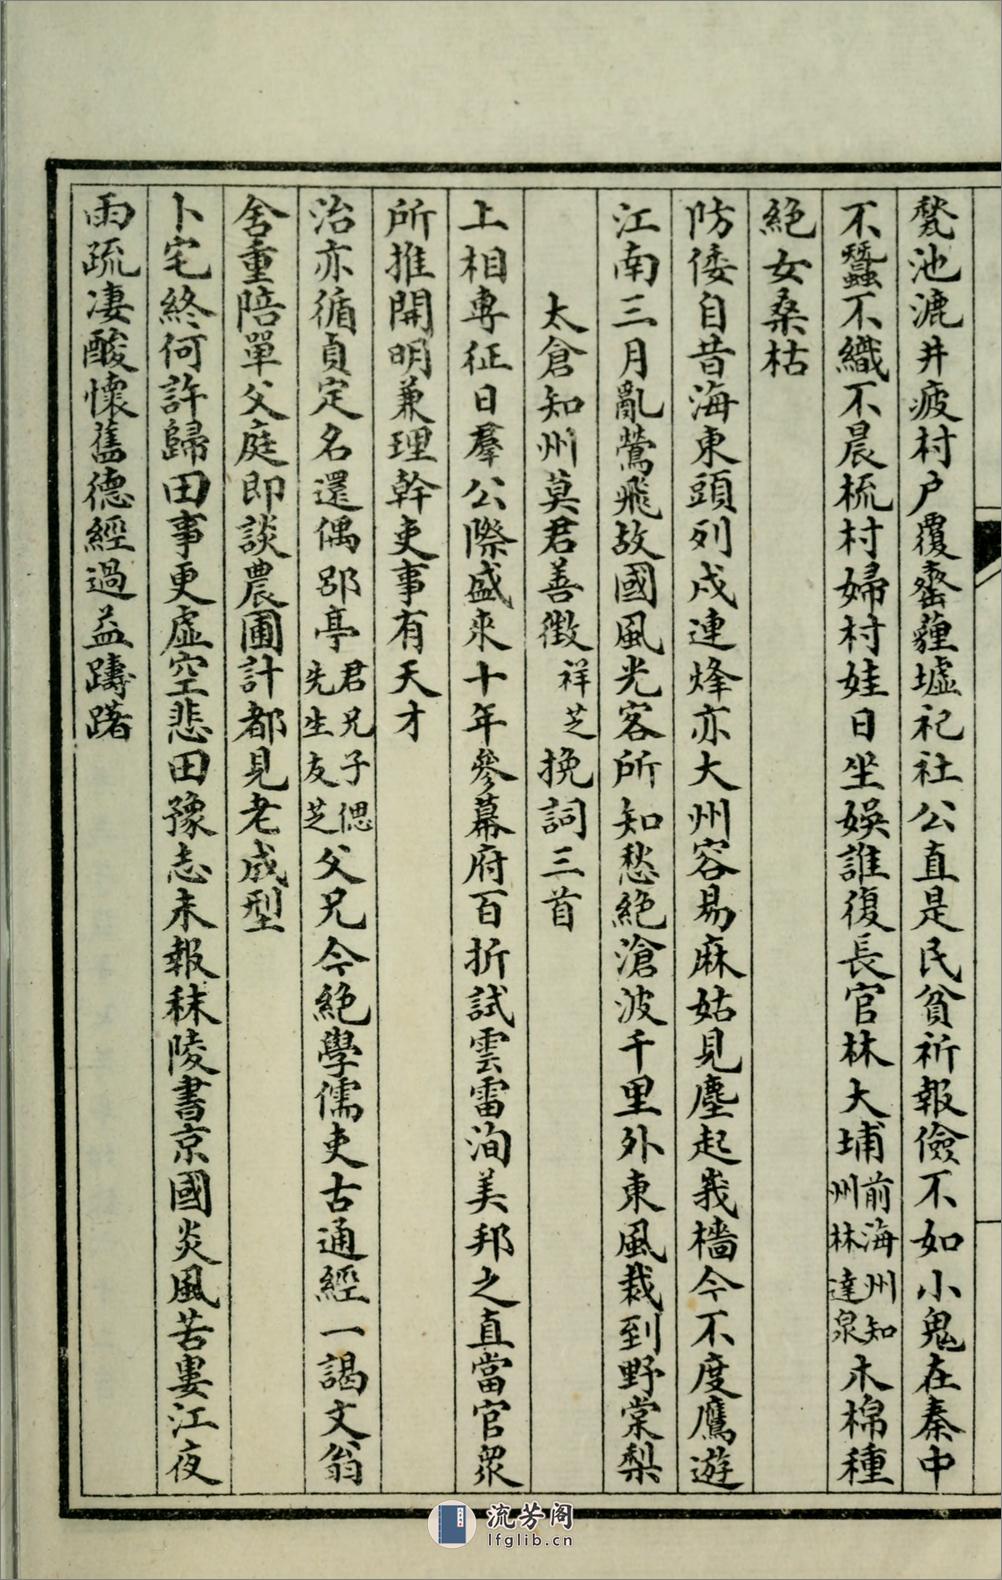 甃池漉井疲村户覆甕蘕墟祀社公直是民貧祈報儉不如小鬼在秦中
不蠶不織不晨梳村婦村娃日坐娛誰復長官林大埔前海州知州林達泉木棉種
絕女桑枯
防倭自昔海東頭列戍連烽亦大州容易麻姑見塵起峩檣今不度鷹遊
江南三月亂鶯飛故國風光客所知愁絕滄波千里外東風栽到野棠梨
太倉知州莫君善徵祥芝挽詞三首
上相專征日羣公際盛來十年參幕府百折試雲雷洵美邦之直當官眾
所推開明兼理幹吏事有天才
治亦循貞定名還偶郘亭君兄子偲先生友芝父兄今絕學儒吏古通經一謁文翁
舍重陪單父庭即談農圃計都見老成型
卜宅終何許歸田事更虛空悲田豫志未報秣陵書京國炎風苦婁江夜
雨疏凄酸懷舊德經過益躊躇
流芳阁
lfglib.cn